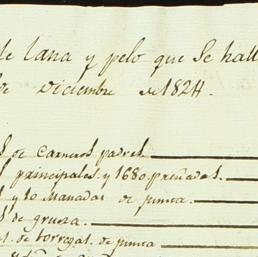 de lana y pelo que se hall
de Diciembre de 1824.
s de carneros padres
principales y 1680 preñadas.
y 10 Manadas de punta.
s de grueza.
s. de borregas. de punta